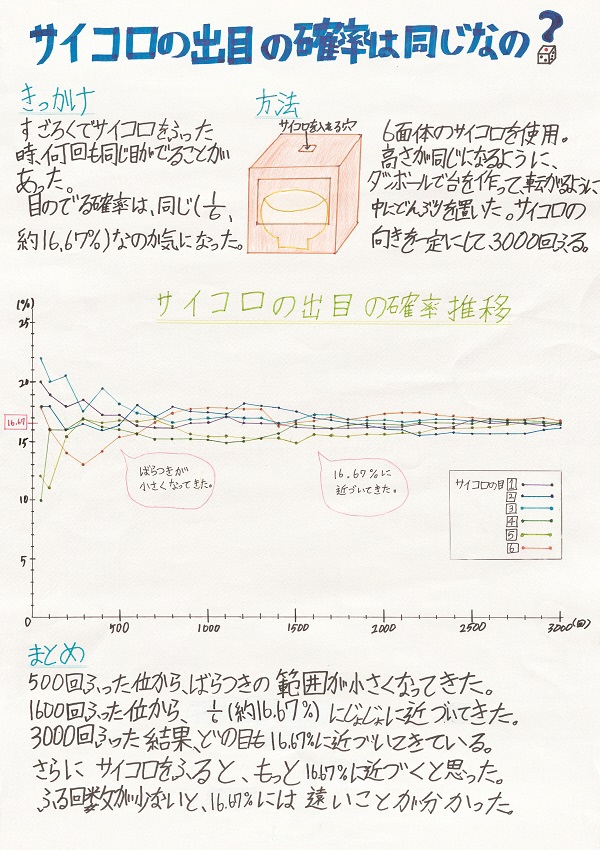 サイコロの出目の確率は同じなの?
きっかけ
すごろくでサイコロをふった
時、何回も同じ目がでることが
あった。
目のでる確率は、同じ(1/6、
約16.67%)なのか気になった。
方法
サイコロを入れる穴
6面体のサイコロを使用。
高さが同じになるように、
ダンボールで台を作って、転がるように
中にどんぶりを置いた。サイコロの
向きを一定にして、3000回ふる。
サイコロの出目の確率推移
(%)
25
20
16.67
15
10
5
0
500
1000
1500
2000
2500
3000(回)
ばらつきが
小さくなってきた。
16.67%に
近づいてきた。
サイコロの目
1
2
3
4
5
6
まとめ
500回ふった位から、ばらつきの範囲が小さくなってきた。
1600回ふった位から、1/6(約16.67%)にじょじょに近づいてきた。
3000回ふった結果、どの目も16.67%に近づいてきている。
さらにサイコロをふると、もっと16.67%に近づくと思った。
ふる回数が少ないと、16.67%には遠いことが分かった。